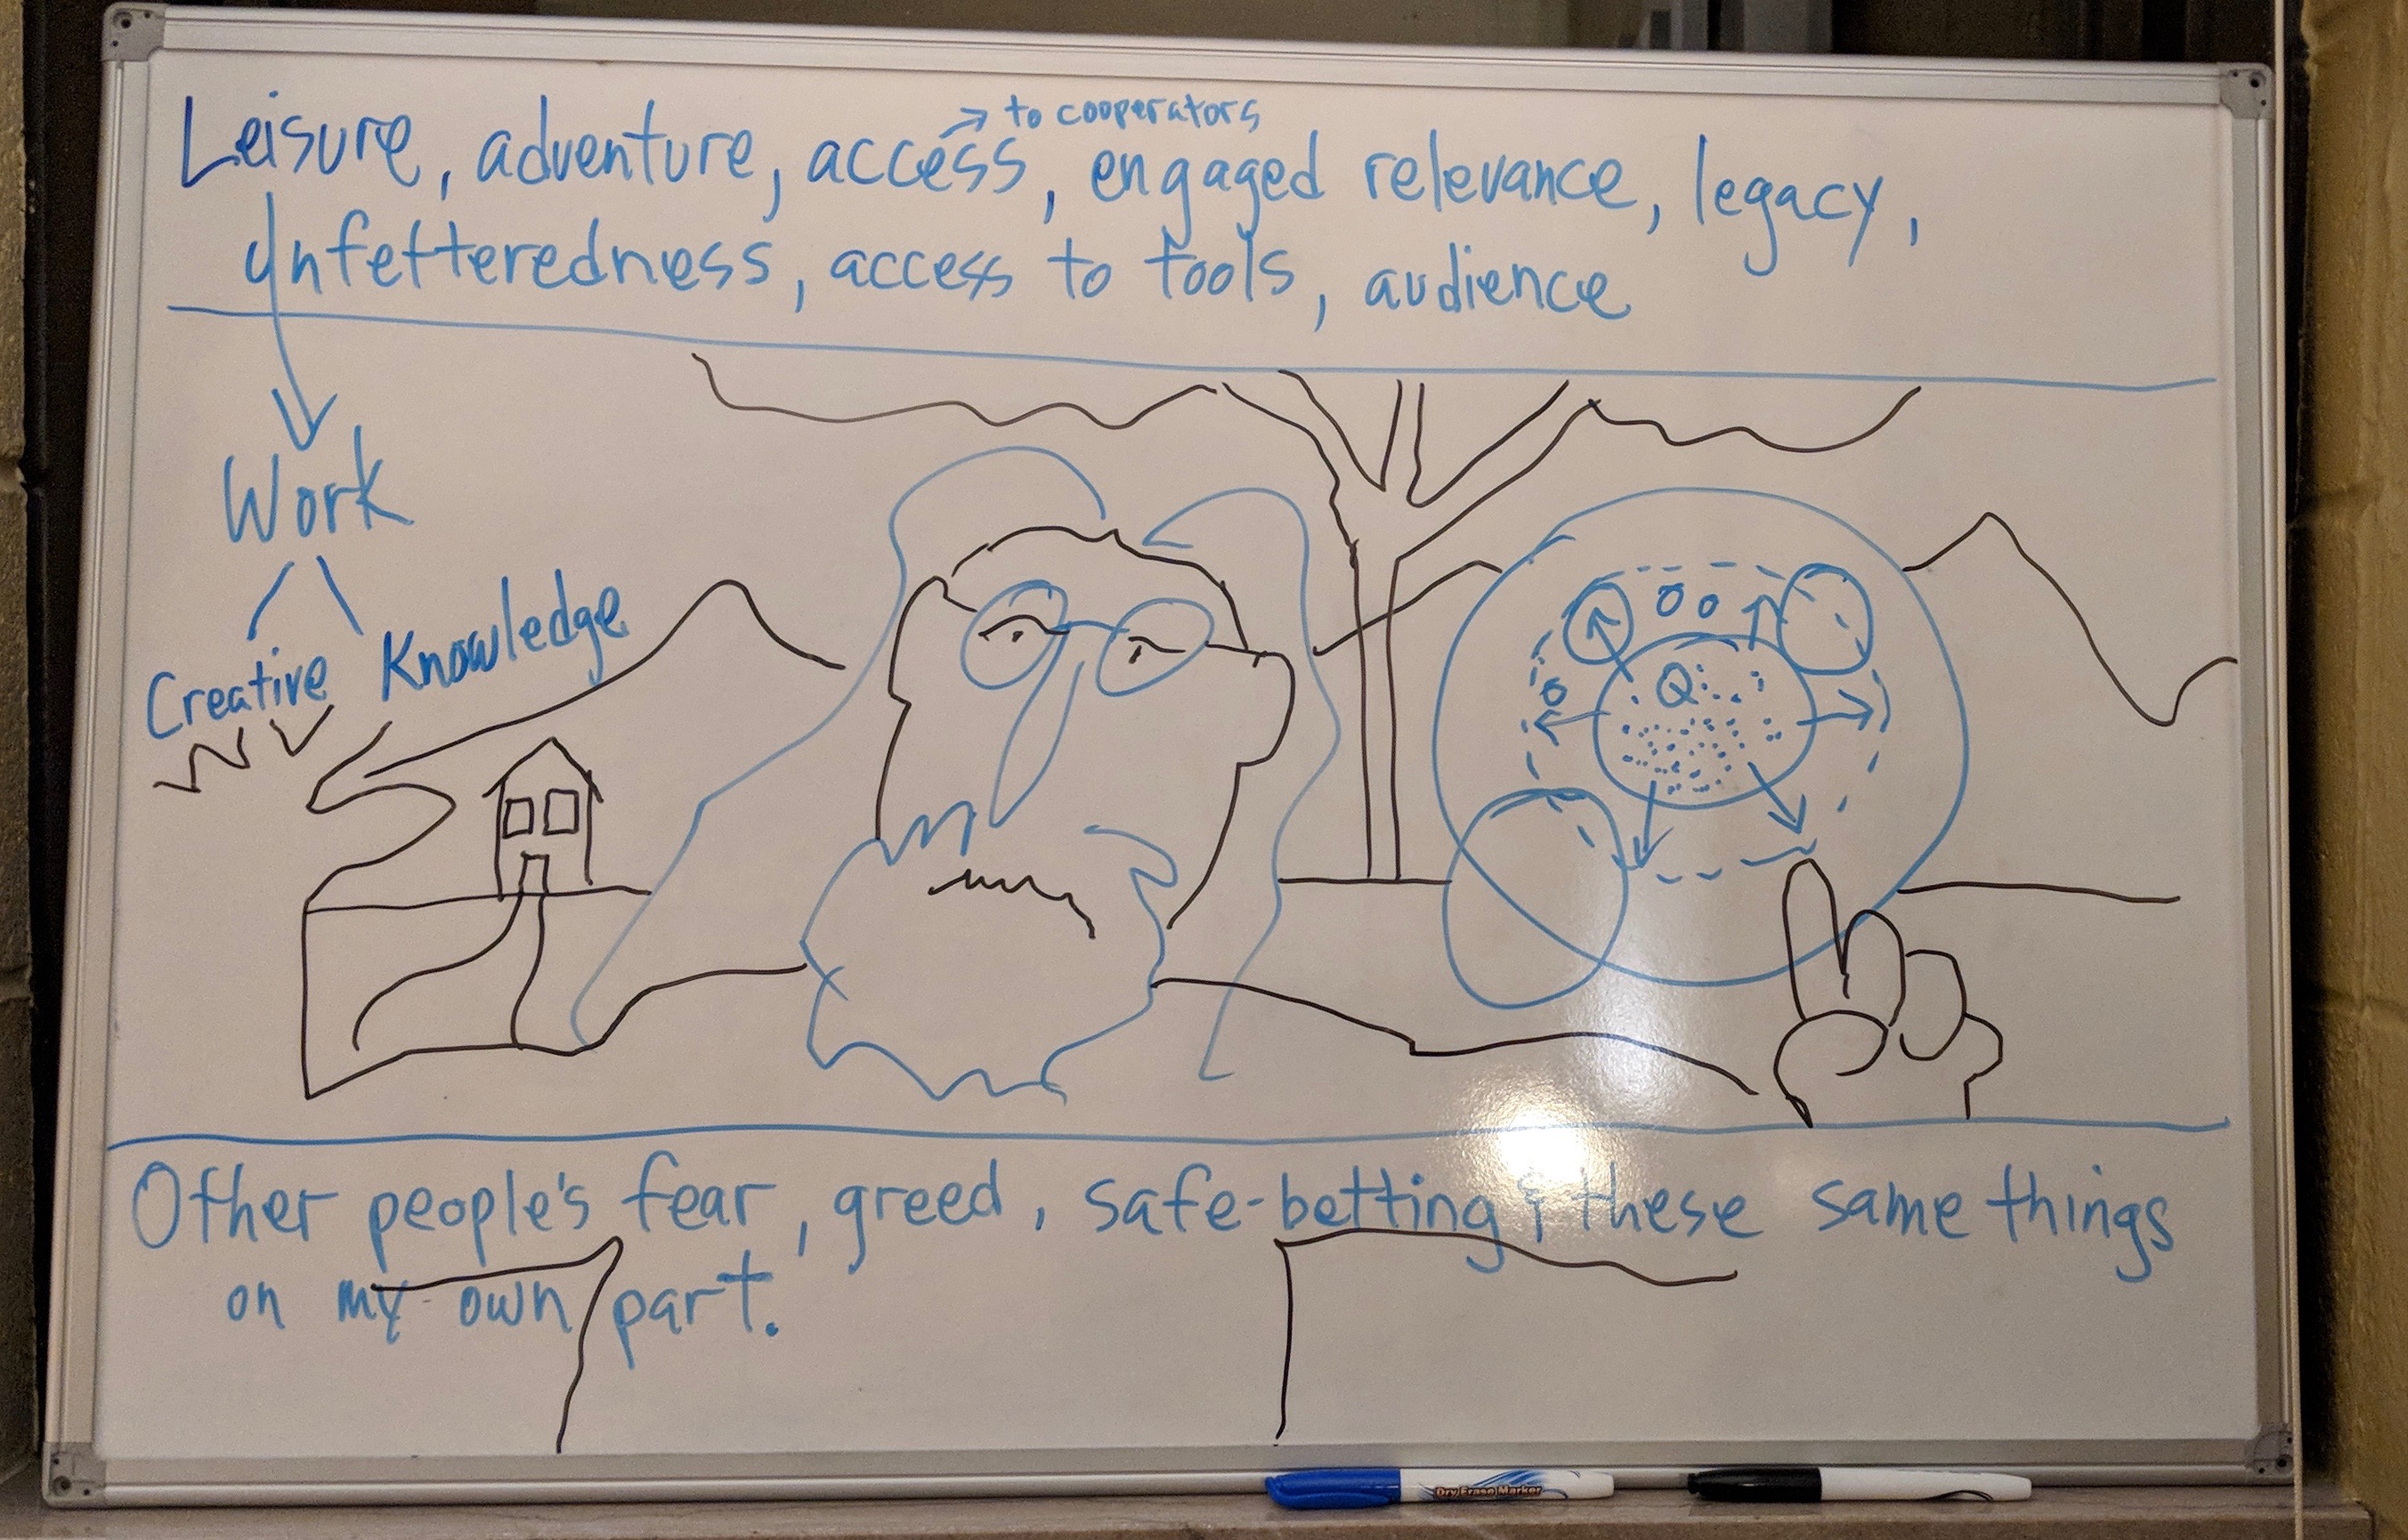 → to cooperators
Leisure, adventure, access, engaged relevance, legacy,
Unfetteredness, access to tools, audience
Work
Creative Knowledge
Q
Other people's fear, greed, safe-betting & these same things
on my own part.
Dry Erase Marker